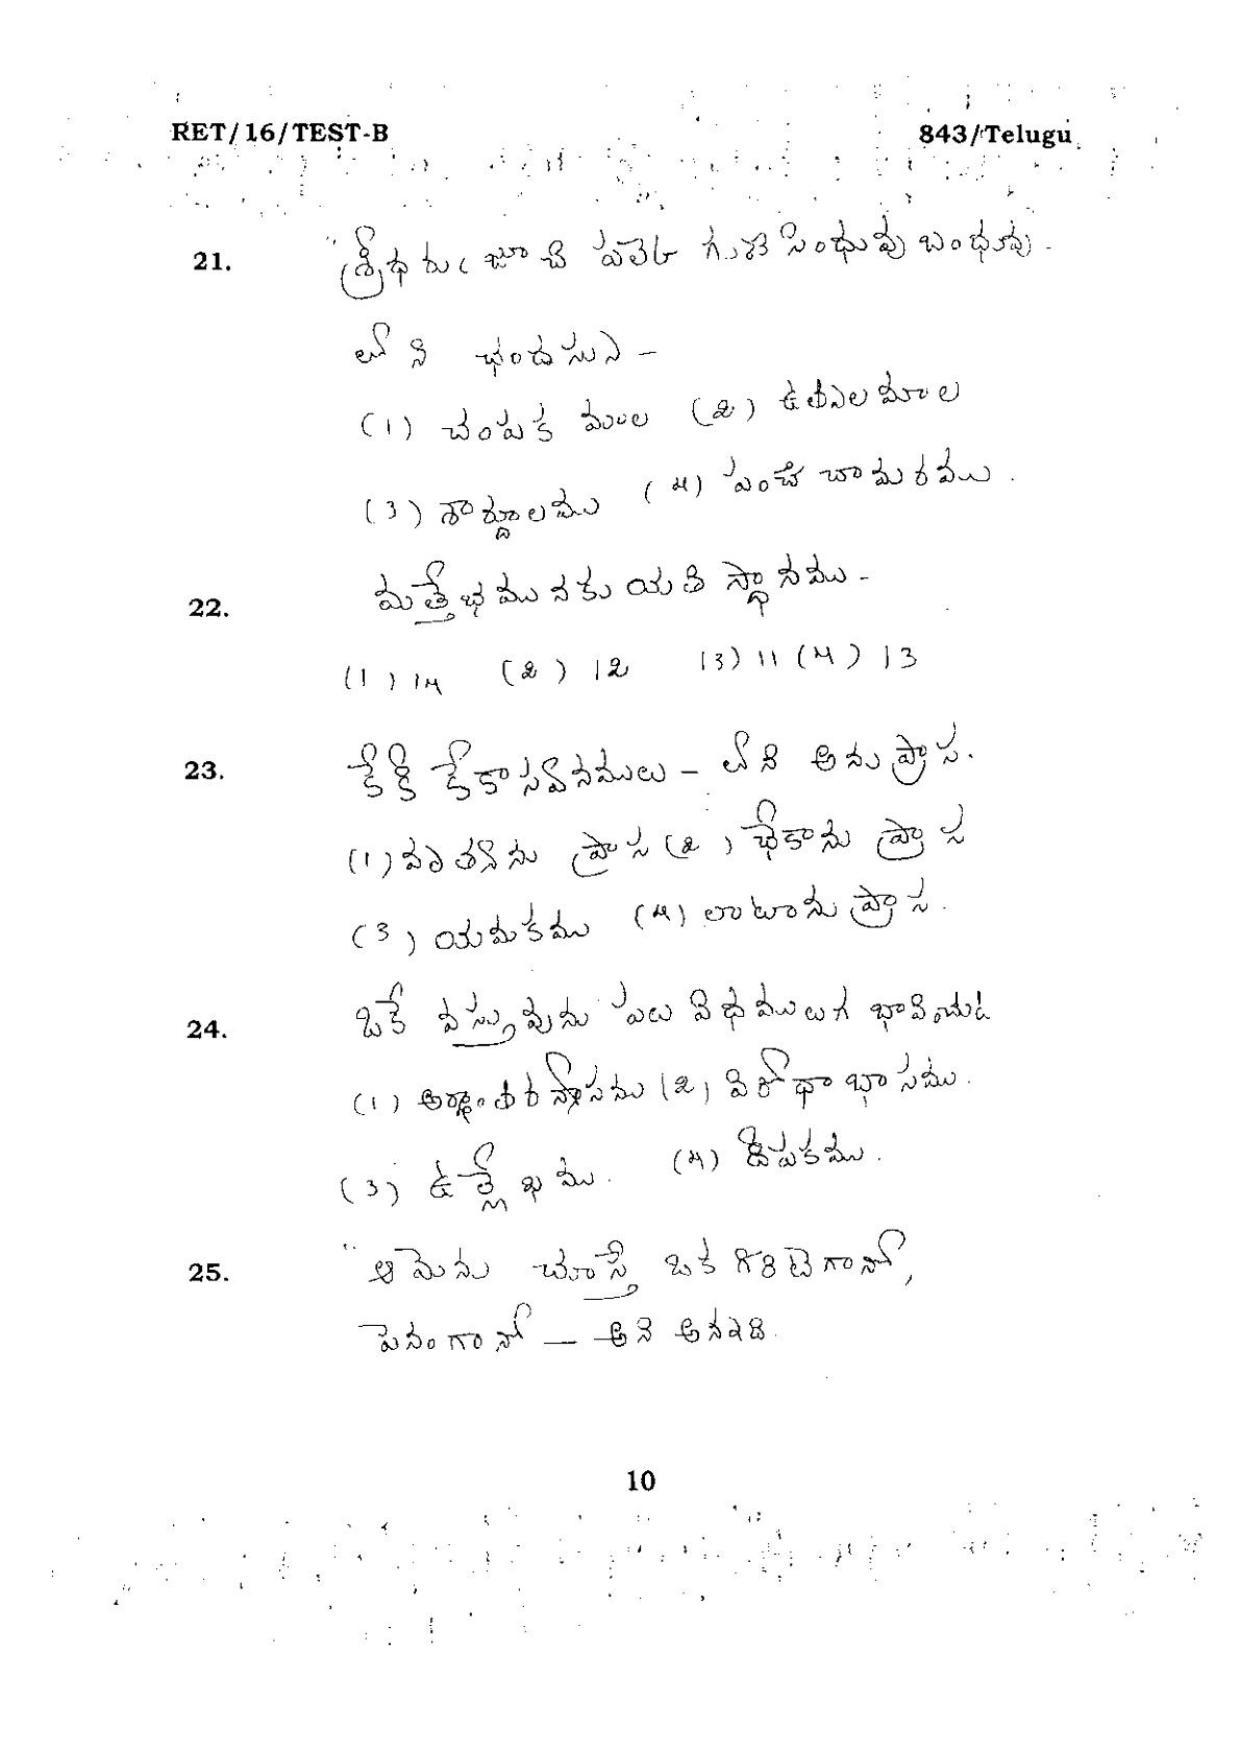 RET/16/TEST-B 843/Telugu
21. "శ్రీధరుఁ జూచి పలికె గుణ సింధువు బంధువు.
లోని ఛందస్సు –
(1) చంపకమాల (2) ఉత్పలమాల
(3) శార్దూలము (4) పంచ చామరము.
22. మత్తేభమునకు యతి స్థానము -
(1) 14 (2) 12 (3) 11 (4) 13
23. కేకీ కేకాస్వనములు – లోని అనుప్రాస.
(1) వృత్త్యను ప్రాస (2) ఛేకాను ప్రాస
(3) యమకము (4) లాటాను ప్రాస.
24. ఒకే వస్తువును పలు విధములుగ భావించుట
(1) అర్థాంతరన్యాసము (2) విరోధాభాసము.
(3) ఉల్లేఖము. (4) దీపకము.
25. "ఆమెను చూస్తే ఒక గరిటెగానో,
పెనంగానో – అని
10